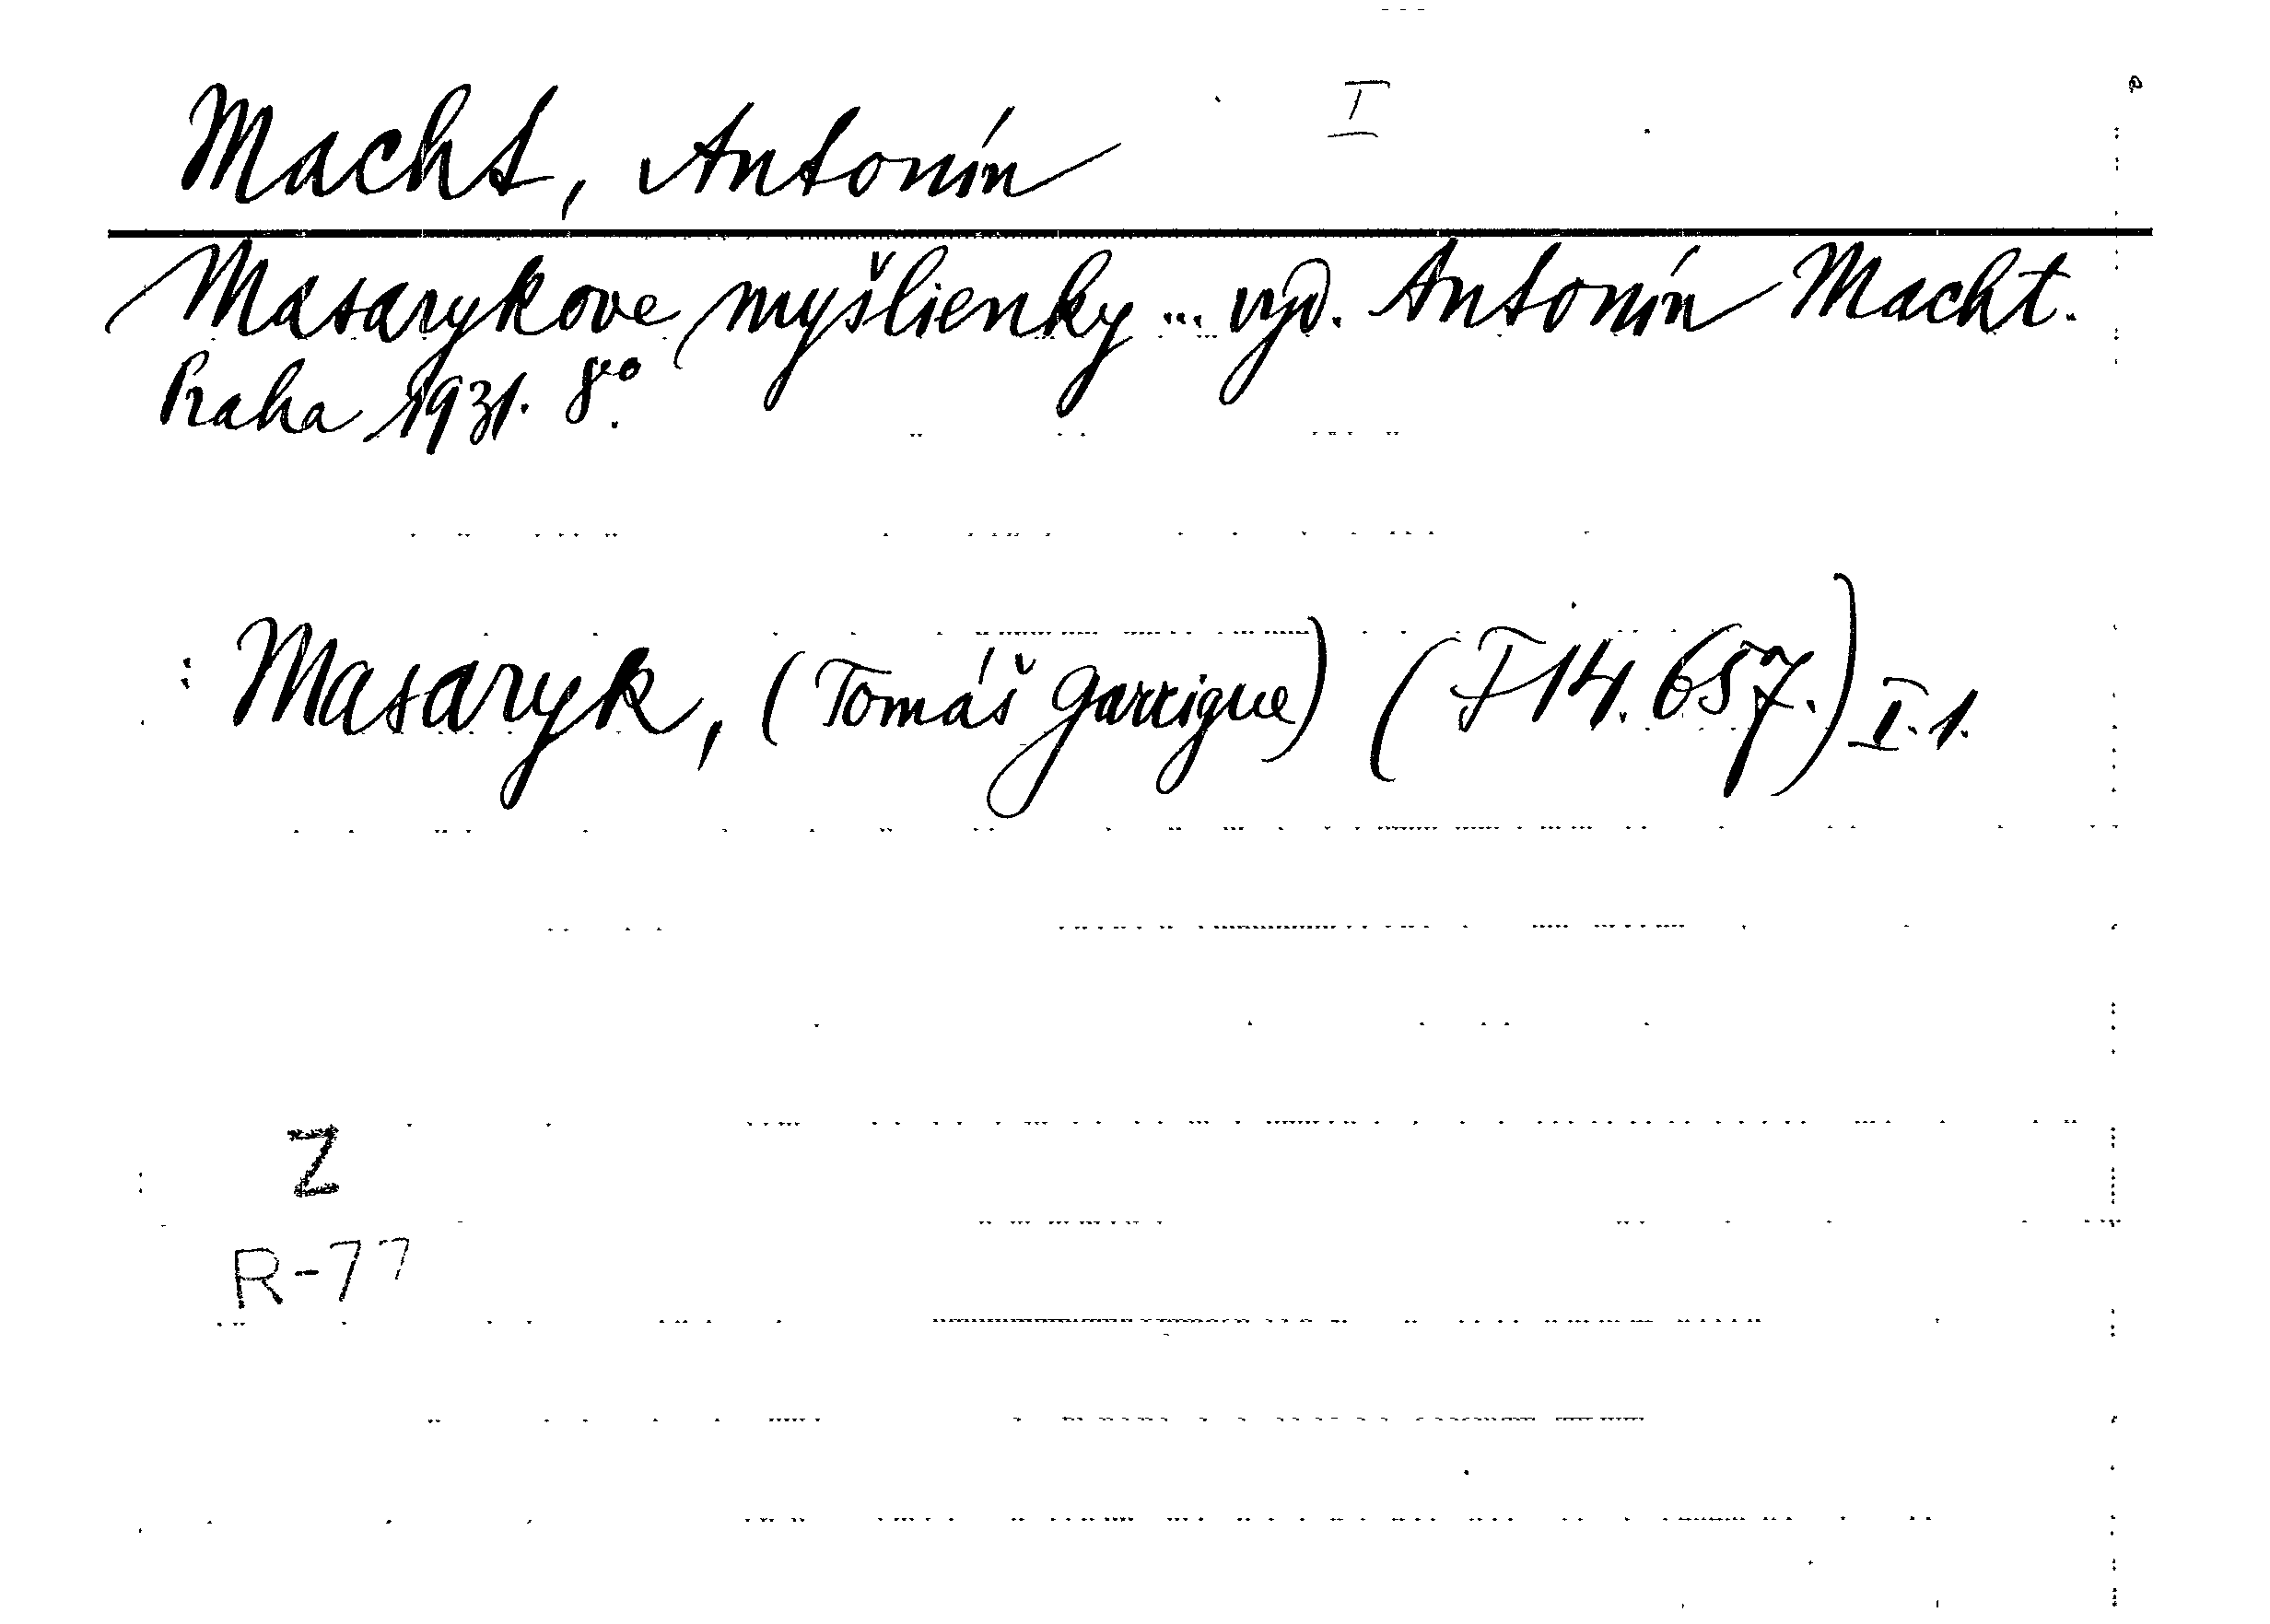 Macht, Antonín I
Masarykove myšlienky ... vyd. Antonín Macht.
Praha 1931. 8vo.
: Masaryk, (Tomáš Garrigue) (F 14.657.) I.1.
Z
R-77